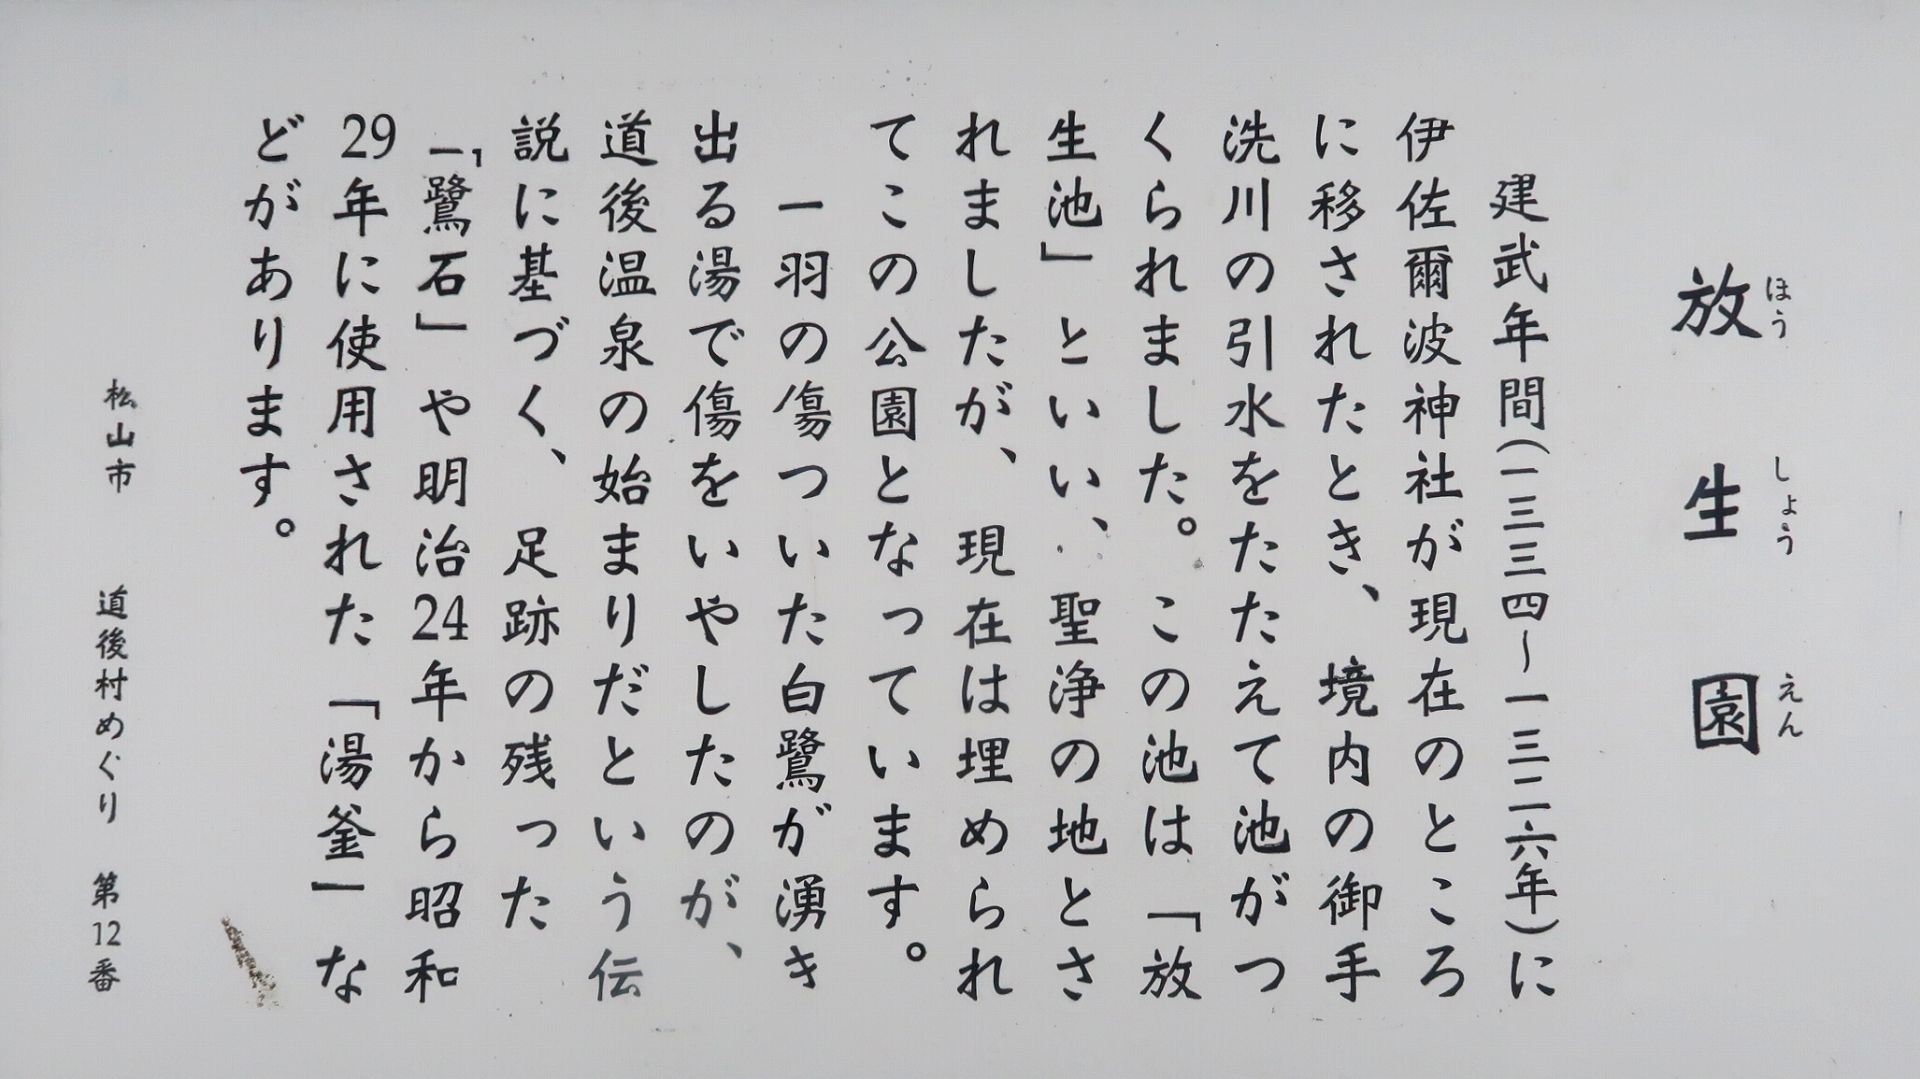 放生園
ほう しょう えん
建武年間(一三三四〜一三二六年)に
伊佐爾波神社が現在のところ
に移されたとき、境内の御手
洗川の引水をたたえて池がつ
くられました。この池は「放
生池」といい、聖浄の地とさ
れましたが、現在は埋められ
てこの公園となっています。
一羽の傷ついた白鷺が湧き
出る湯で傷をいやしたのが、
道後温泉の始まりだという伝
説に基づく、足跡の残った
「鷺石」や明治24年から昭和
29年に使用された「湯釜」な
どがあります。
松山市 道後村めぐり 第12番